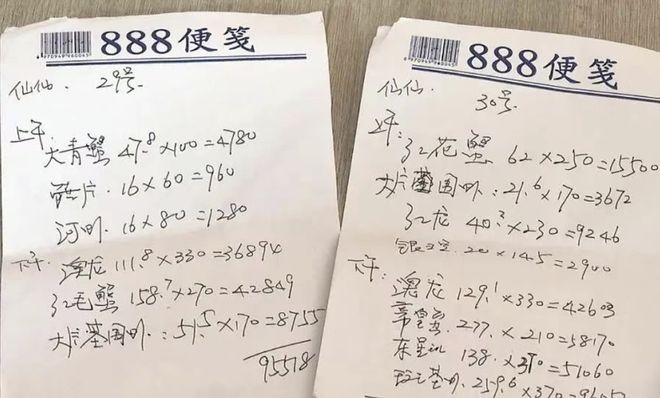 888便笺
6970949660045
仙仙. 29号.
上午:
大青蟹 47.8×100=4780
16×60=960
河虾. 16×80=1280
下午: 澳龙 111.8×330=36894
红毛蟹 158.7×270=42849
大片基围虾.: 51.5×170=8755
95518
888便笺
仙仙. 30号.
红花蟹 62×250=15500
大片基围虾.: 21.6×170=3672
红龙 40.2×230=9246
20×145=2900
下午:
澳龙 129.1×330=42603
帝皇蟹 277.×210=58170
东星斑 138.×370=51060
基虾. 259.6×370=